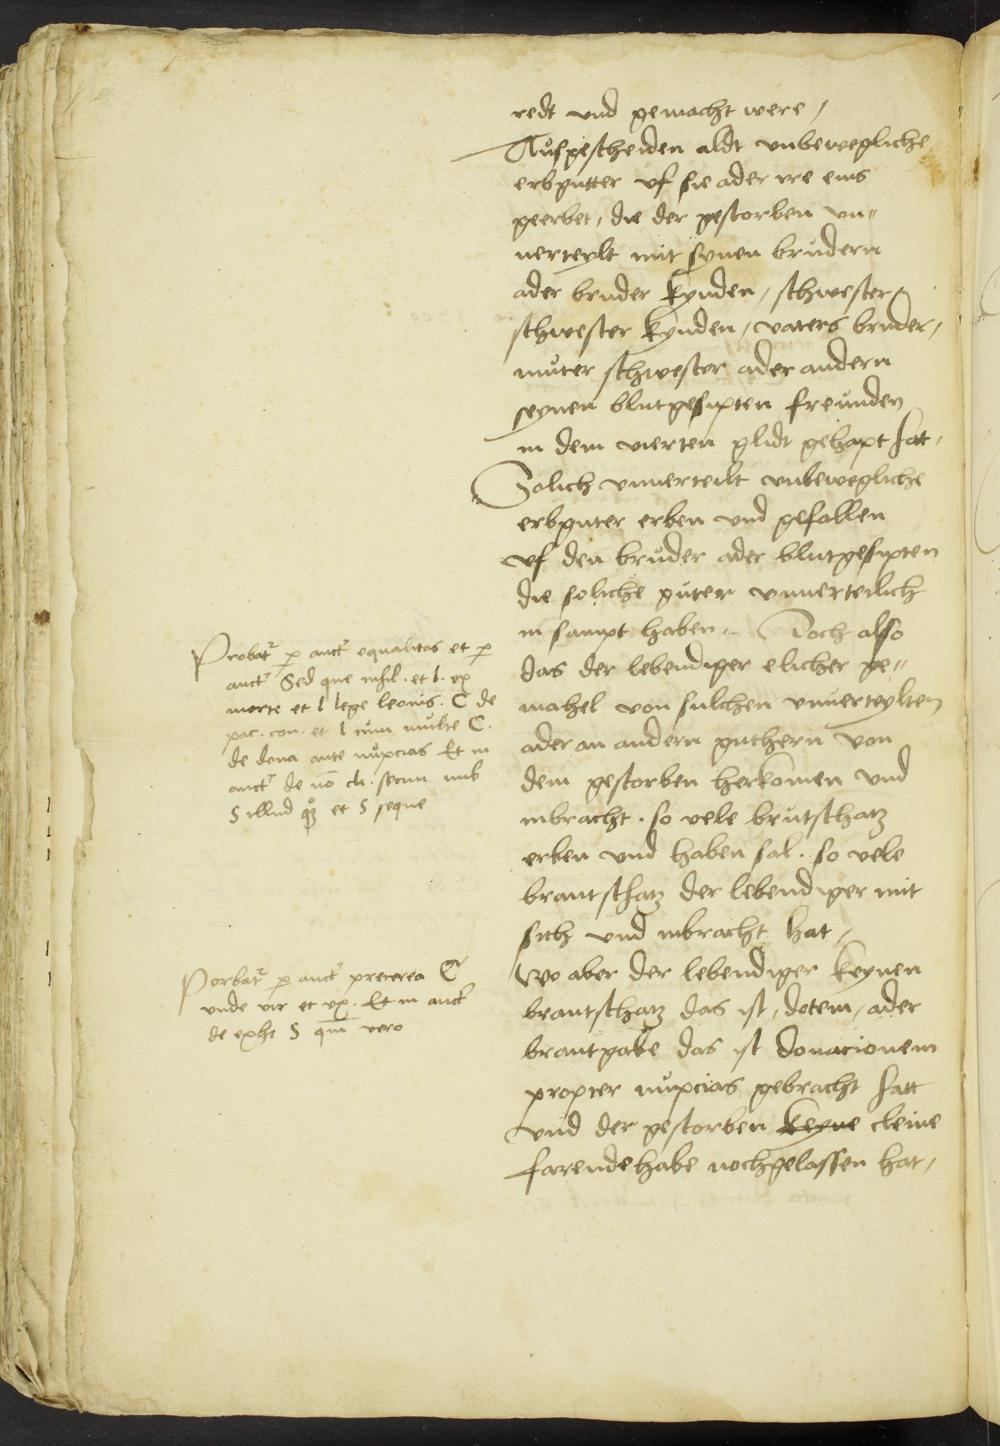 redt vnd gemacht were /
Außgescheiden aldt vnbewegliche
erbgutter vf sie ader ire eins
geerbet, die der gestorben vn„
uerteylt mit synen brudern
ader bruder kynden / schwester /
schwester kynden / vaters bruder /
muter schwester ader andern
seynen blutgesipten freunden
in dem vierten glidt gehapt hatt /
Solich vnuerteilt vnbewegliche
erbguter erben vnd gefallen
vf den bruder ader blutgesipten
die soliche guter vnuerteilich
in sampt haben. Doch also
das der lebendiger elicher ge„
mahel von sulchen vnuerteylten
ader an andern guthern von
dem gestorben herkomen vnd
inbracht . so vele brutschatz
erben vnd haben sal . so vele
brautschatz der lebendiger mit
sich vnd inbracht hat /
Wo aber der lebendiger keynen
brautschatz das ist, dotem, ader
brautgabe das ist donacionem
propter nupcias gebracht hatt
vnd der gestorben keyne cleine
farende habe nochgelassen hat /
Probatr p auct equalitas et p
auct Sed que nihil . et l . vx
morte et l lege leonis . C de
pac . con . et l cum multe C .
de dona ante nupcias Et in
auct de no eli . secun nub
§ illud qz et § seque
Porbatr p auct preterea C
vnde vir et vx . Et in auct
de exhi § qm vero